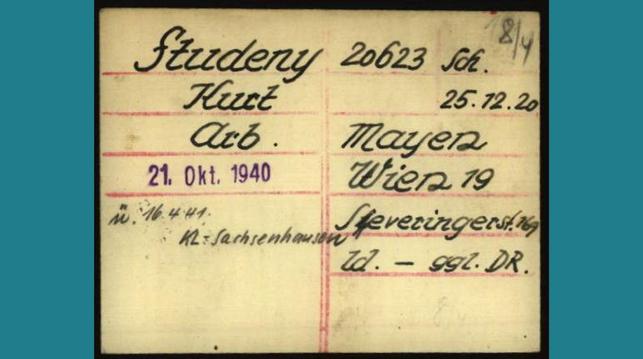 8/4
Studeny 20623 Sch.
Kurt 25.12.20
Arb. Mayen
21. Okt. 1940 Wien 19
ü. 16.4.41. Sieveringerst. 169
KL: Sachsenhausen
ld. – ggl. DR.